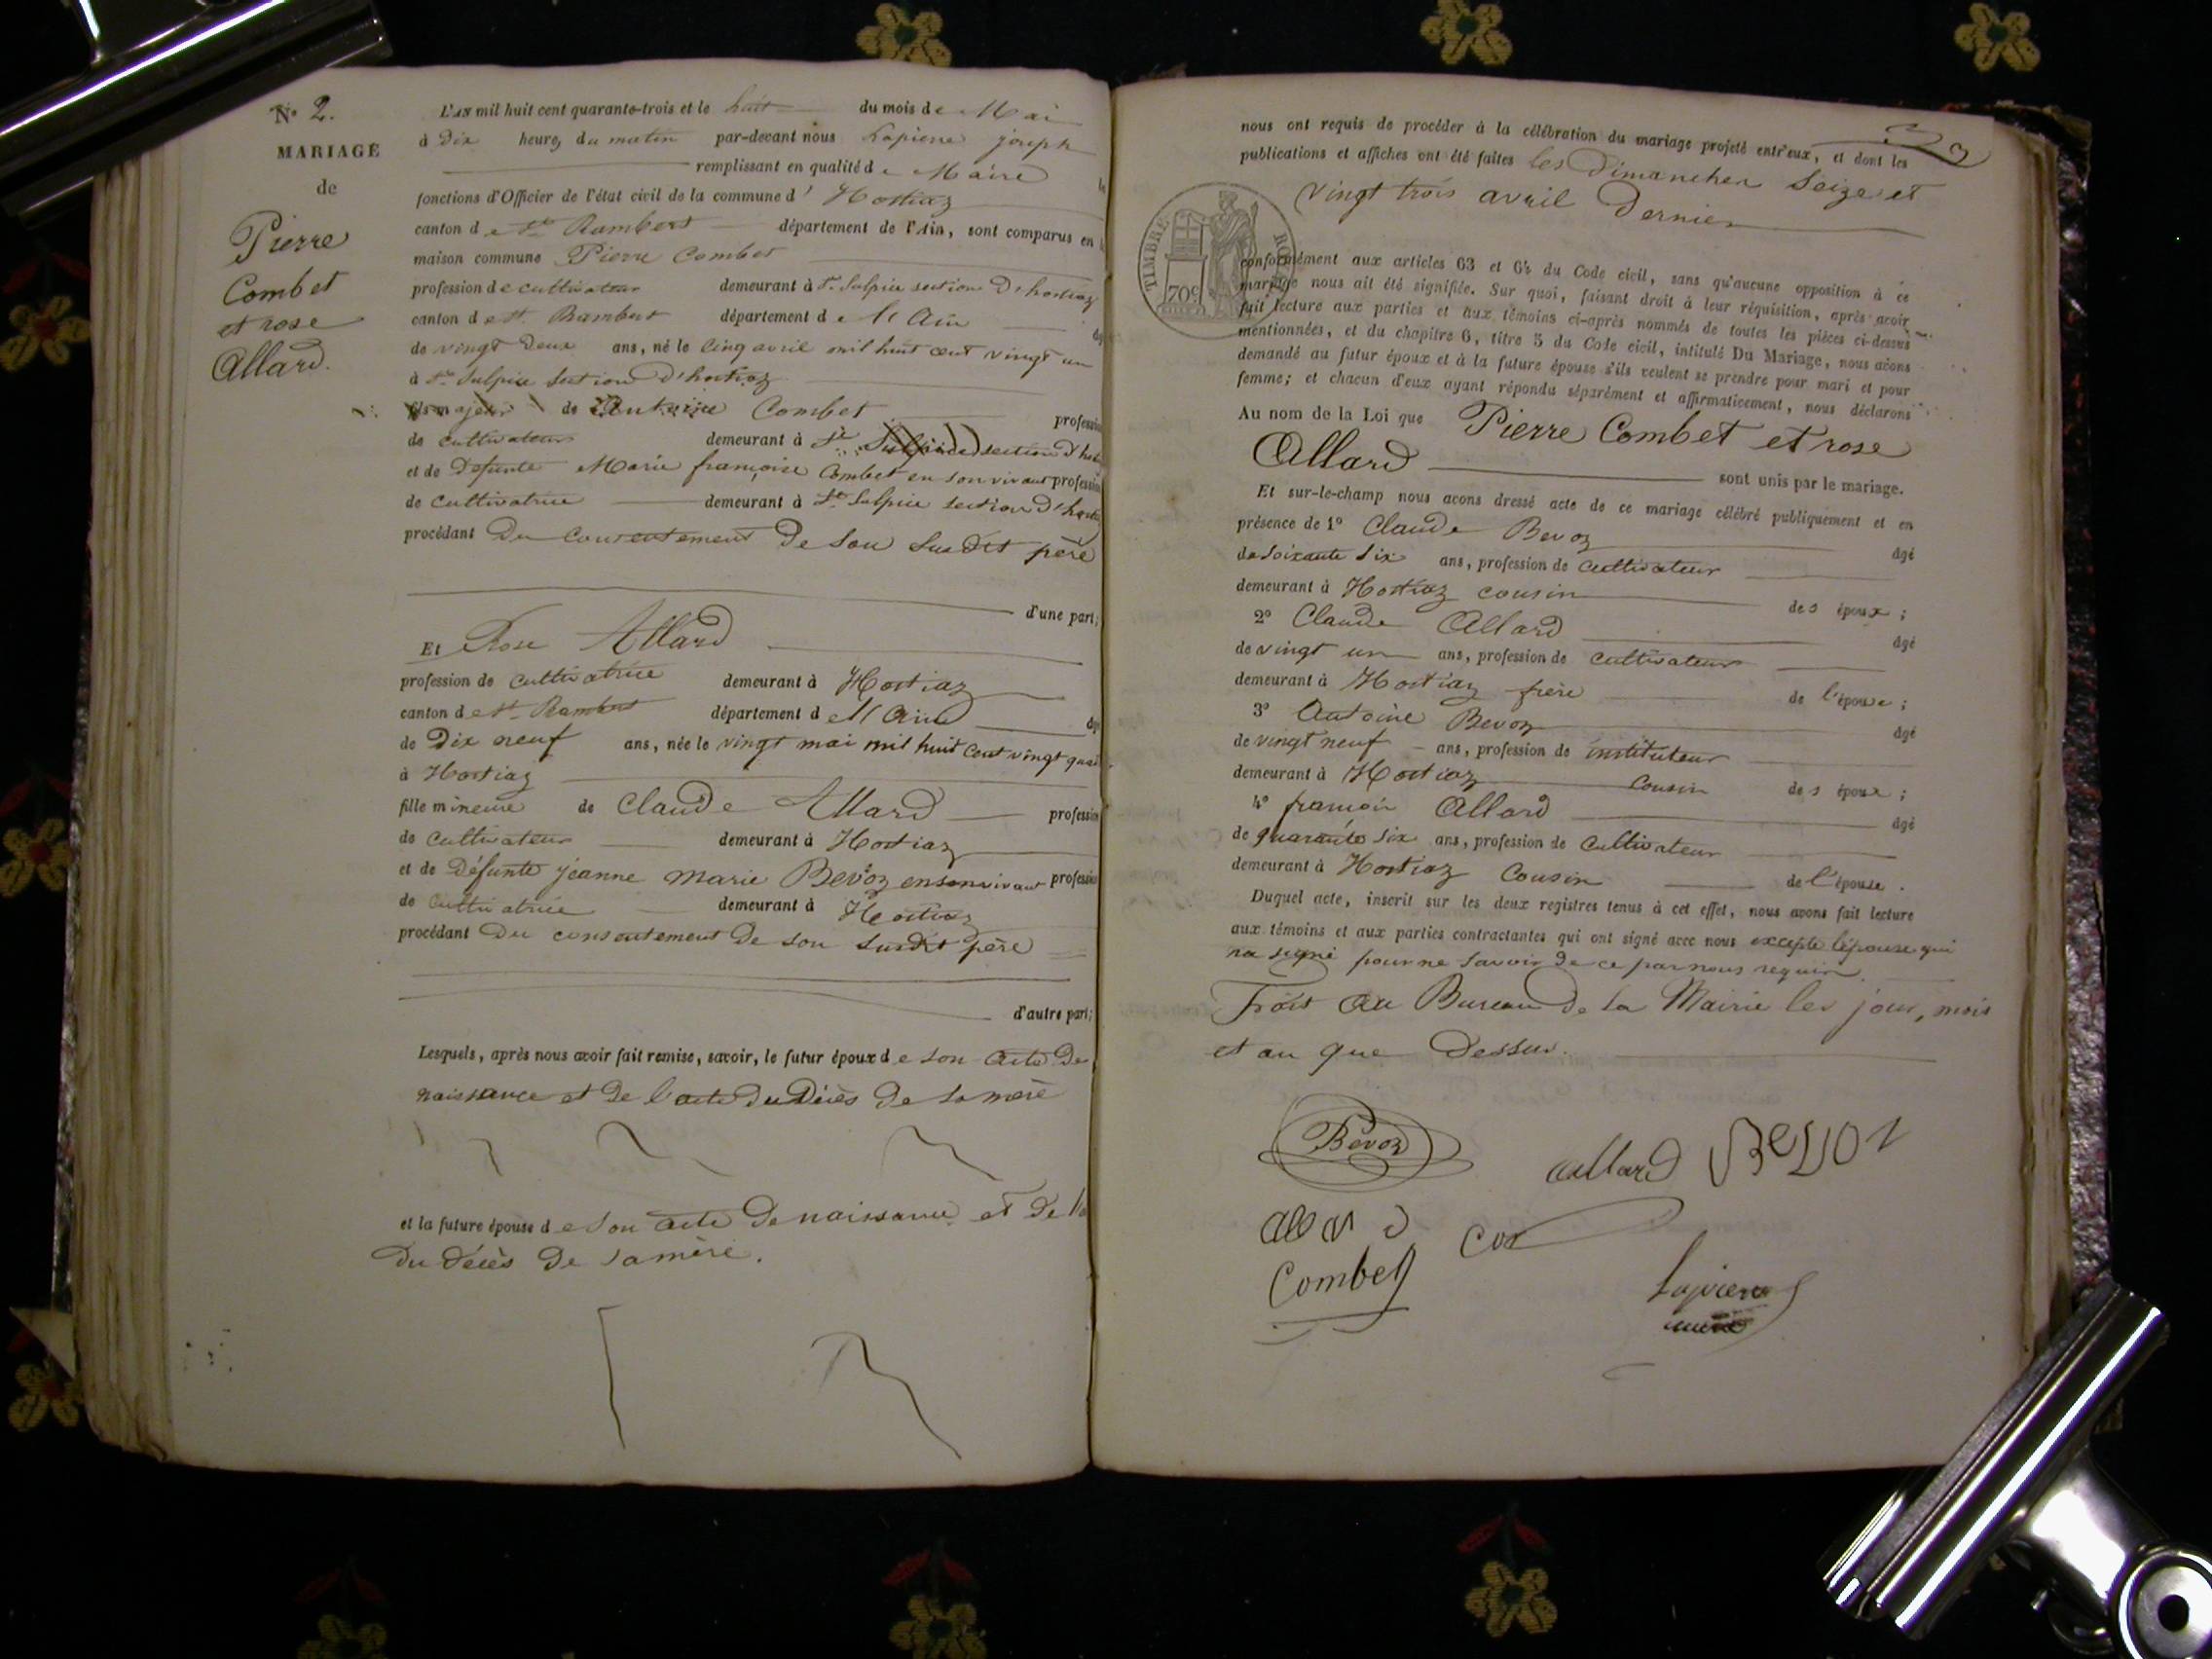 N° 2.
MARIAGE
de
Pierre
Combet
et rose
Allard.
L'AN mil huit cent quarante-trois et le huit du mois de Mai
à Dix heures du matin par-devant nous Lapierre joseph
remplissant en qualité de Maire
fonctions d'Officier de l'état civil de la commune d'Hostiaz
canton de St Rambert département de l'Ain, sont comparus en
maison commune Pierre Combet
profession de cultivateur demeurant à St Sulpice section D'hostiaz
canton de St Rambert département de l'Ain
de vingt Deux ans, né le Cinq avril mil huit cent vingt un
à St Sulpice section D'hostiaz
fils majeur de Antoine Combet profession
de cultivateur demeurant à St Sulpice section D'host
et de Défunte Marie françoise Combet en son vivant profession
de cultivatrice demeurant à St Sulpice section D'host
procédant Du Consentement De Son Susdit père
d'une part;
Et Rose Allard
profession de cultivatrice demeurant à Hostiaz
canton de St Rambert département de l'Ain
de Dix neuf ans, née le vingt mai mil huit cent vingt quat
à Hostiaz
fille mineure de Claude Allard profession
de cultivateur demeurant à Hostiaz
et de Défunte jeanne marie Bevoz en son vivant profession
de cultivatrice demeurant à Hostiaz
procédant Du consentement De son Susdit père
d'autre part;
Lesquels, après nous avoir fait remise, savoir, le futur époux de son acte De
naissance et De l'acte Du Décès De Sa mère
et la future épouse de son acte De naissance et De
Du décès De Sa mère.
nous ont requis de procéder à la célébration du mariage projeté entr'eux, et dont les
publications et affiches ont été faites les Dimanches Seize et
vingt trois avril Dernier
TIMBRE ROYAL
70c
conformément aux articles 63 et 64 du Code civil, sans qu'aucune opposition à ce
mariage nous ait été signifiée. Sur quoi, faisant droit à leur réquisition, après avoir
fait lecture aux parties et aux témoins ci-après nommés de toutes les pièces ci-dessus
mentionnées, et du chapitre 6, titre 5 du Code civil, intitulé Du Mariage, nous avons
demandé au futur époux et à la future épouse s'ils veulent se prendre pour mari et pour
femme; et chacun d'eux ayant répondu séparément et affirmativement, nous déclarons
Au nom de la Loi que Pierre Combet et rose
Allard sont unis par le mariage.
Et sur-le-champ nous avons dressé acte de ce mariage célébré publiquement et en
présence de 1° Claude Bevoz âgé
de Soixante Six ans, profession de Cultivateur
demeurant à Hostiaz cousin des époux;
2° Claude Allard âgé
de vingt un ans, profession de cultivateur
demeurant à Hostiaz frère de l'épouse;
3° Antoine Bevoz âgé
de vingt neuf ans, profession de instituteur
demeurant à Hostiaz Cousin des époux;
4° françois Allard âgé
de quarante Six ans, profession de Cultivateur
demeurant à Hostiaz Cousin de l'épouse.
Duquel acte, inscrit sur les deux registres tenus à cet effet, nous avons fait lecture
aux témoins et aux parties contractantes qui ont signé avec nous excepte l'épouse qui
na signé pour ne Savoir De ce par nous requis.
Frait Au Bureau De la Mairie les jour, mois
et an que Dessus.
Bevoz
allard Bevoz
allard
Combet
Lapierre
maire